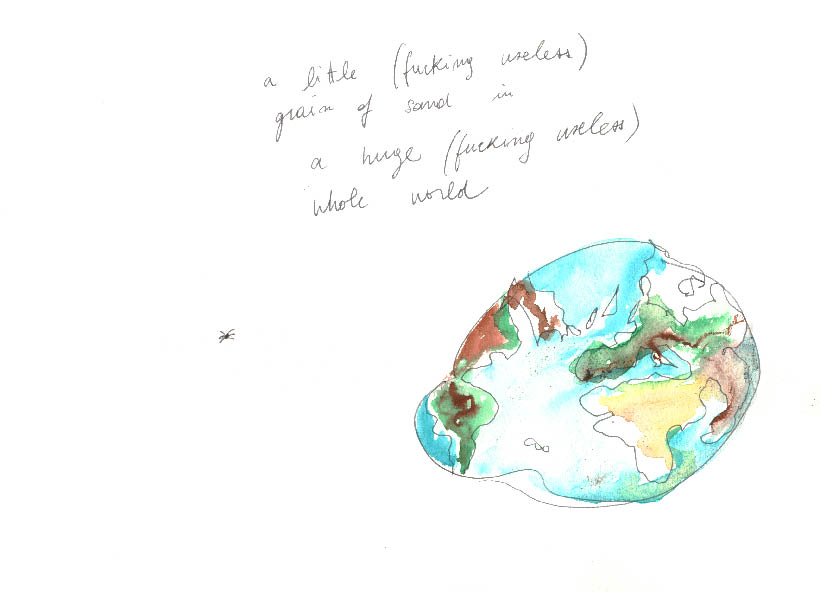 a little (fucking useless)
grain of sand in
a huge (fucking useless)
whole world